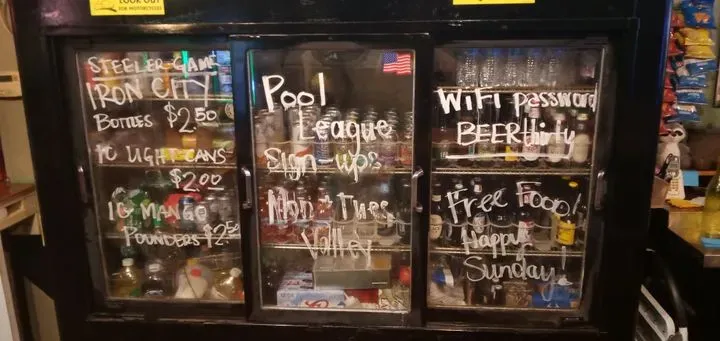 LOOK OUT
FOR MOTORCYCLES
STEELER GAME
IRON CITY
BOTTLES $2.50
IC LIGHT CANS
$2.00
IC MANGO
POUNDERS $2.50
Pool
League
Sign ups
Mon + Tues
Valley
WiFi password
BEERthirty
Free Food!
Happy
Sunday!